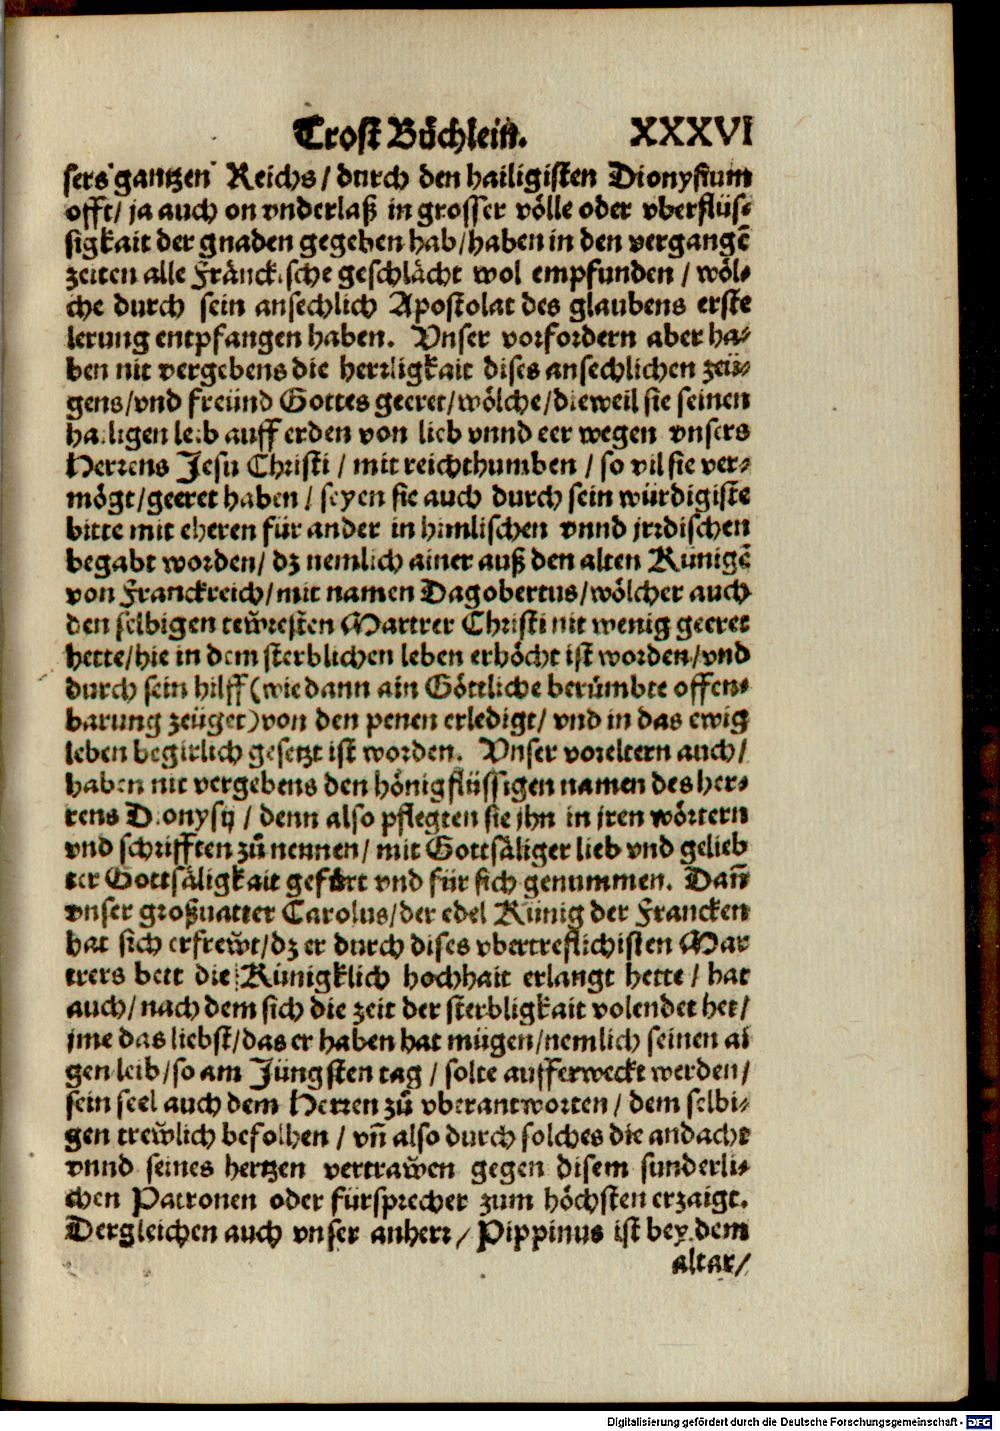 Trost Bůchlein. XXXVI
sers gantzen Reichs / durch den hailigisten Dionysium
offt / ja auch on vnderlaß in grosser völle oder vberflüs-
sigkait der gnaden gegeben hab / haben in den vergangẽ
zeiten alle Fränckische geschlächt wol empfunden / wöl-
che durch sein ansechlich Apostolat des glaubens erste
lerung entpfangen haben. Vnser vorfordern aber ha-
ben nit vergebens die herrligkait dises ansechlichen zeü-
gens / vnd freünd Gottes geeret / wölche / dieweil sie seinen
hailigen leib auff erden von lieb vnnd eer wegen vnsers
Herrens Jesu Christi / mit reichthumben / so vil sie ver-
mögt / geeret haben / seyen sie auch durch sein würdigiste
bitte mit eheren für ander in himlischen vnnd jrrdischen
begabt worden / dz nemlich ainer auß den alten Künigẽ
von Franckreich / mit namen Dagobertus / wölcher auch
den selbigen teẘresten Martrer Christi nit wenig geeret
hette / hie in dem sterblichen leben erhöcht ist worden / vnd
durch sein hilff (wie dann ain Göttliche berůmbte offen-
barung zeüget) von den penen erledigt / vnd in das ewig
leben begirlich gesetzt ist worden. Vnser voreltern auch /
haben nit vergebens den hönigflüssigen namen des her-
rens Dionysij / denn also pflegten sie jhn in jren wörtern
vnd schrifften zů nennen / mit Gottsäliger lieb vnd gelieb
ter Gottsäligkait gefürt vnd für sich genummen. Dañ
vnser großuatter Carolus / der edel Künig der Francken
hat sich erfreẘt / dz er durch dises vbertreflichisten Mar
trers bett die Künigklich hochhait erlangt hette / hat
auch / nach dem sich die zeit der sterbligkait volendet het /
jme das liebst / das er haben hat mügen / nemlich seinen ai
gen leib / so am Jüngsten tag / solte aufferweckt werden /
sein seel auch dem Herren zů vberantworten / dem selbi-
gen treẘlich befolhen / vñ also durch solches die andacht
vnnd seines hertzen vertraẘen gegen disem sunderli-
chen Patronen oder fürsprecher zum höchsten erzaigt.
Dergleichen auch vnser anherr / Pippinus ist bey dem
altar /
Digitalisierung gefördert durch die Deutsche Forschungsgemeinschaft - DFG